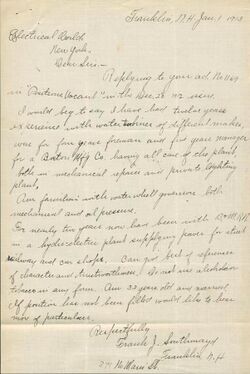 Franklin, N.H. Jan. 1 1913.
Electrical World
New York.
Dear Sirs:-
Replying to your ad. No 1169
in "Positions Vacant" in the Dec. 28 '12 issue.
I would beg to say I have had twelve years
experience with water turbines of different makes,
was for four years foreman and five years manager
for a Boston Mfg Co. having all care of the plant,
both in mechanical repairs and private lighting
plant,
Am familiar with water wheel governors both
mechanical and oil pressure.
For nearly two years now have been with B & M R.R.
in a hydroelectric plant supplying power for street
railway and car shops. Can get best of reference
of character and trustworthiness. Do not use alcohol or
tobacco in any form. Am 33 years old and married.
If position has not been filled would like to hear
more of particulars.
Respectfully
Frank J. Southmayd
Franklin N.H.
274 No Main St.